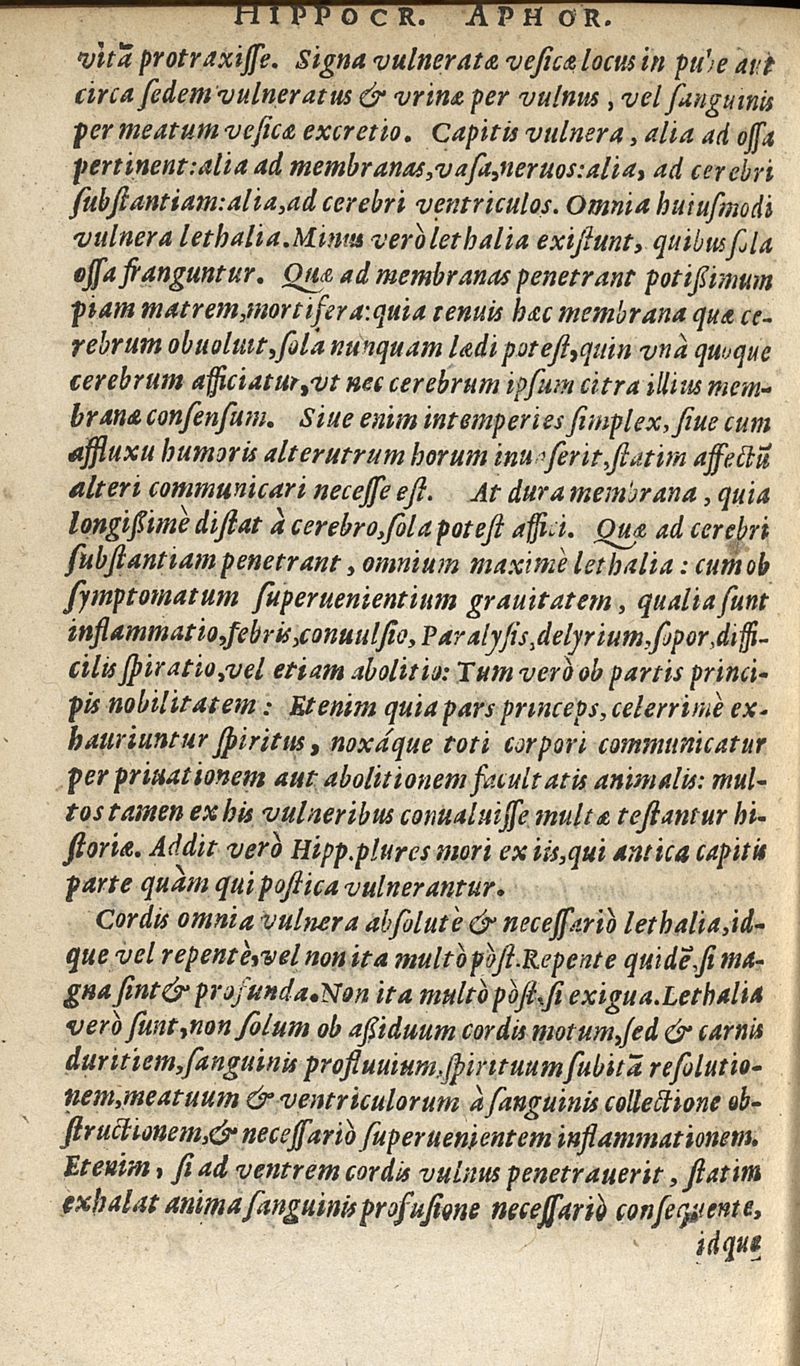 HIPPOCR. APHOR.
vitā protraxisse. Signa vulneratæ vesicæ locus in pube aut
circa sedem vulneratus & vrinæ per vulnus, vel sanguinis
per meatum vesicæ excretio. Capitis vulnera, alia ad ossa
pertinent: alia ad membranas, vasa, neruos: alia, ad cerebri
substantiam: alia, ad cerebri ventriculos. Omnia huiusmodi
vulnera lethalia. Minus verò lethalia existunt, quibus sola
ossa franguntur. Quæ ad membranas penetrant potißimum
piam matrem, mortifera: quia tenuis hæc membrana quæ ce-
rebrum obuoluit, sola nunquam lædi potest, quin vnà quoque
cerebrum afficiatur, vt nec cerebrum ipsum citra illius mem-
branæ consensum. Siue enim intemperies simplex, siue cum
affluxu humoris alterutrum horum inuaserit, statim affectū
alteri communicari necesse est. At dura membrana, quia
longißimè distat à cerebro, sola potest affici. Quæ ad cerebri
substantiam penetrant, omnium maximè lethalia: cum ob
symptomatum superuenientium grauitatem, qualia sunt
inflammatio, febris, conuulsio, Paralysis, delyrium, sopor, diffi-
cilis spiratio, vel etiam abolitio: Tum verò ob partis princi-
pis nobilitatem: Etenim quia pars princeps, celerrimè ex-
hauriuntur spiritus, noxáque toti corpori communicatur
per priuationem aut abolitionem facultatis animalis: mul-
tos tamen ex his vulneribus conualuisse multæ testantur hi-
storiæ. Addit verò Hipp. plures mori ex iis, qui antica capitis
parte quàm qui postica vulnerantur.
Cordis omnia vulnera absolutè & necessariò lethalia, id-
que vel repentè, vel non ita multò pòst. Repente quidē, si ma-
gna sint & profunda. Non ita multò pòst, si exigua. Lethalia
verò sunt, non solum ob aßiduum cordis motum, sed & carnis
duritiem, sanguinis profluuium, spirituum subitā resolutio-
nem, meatuum & ventriculorum à sanguinis collectione ob-
structionem, & necessariò superuenientem inflammationem.
Etenim, si ad ventrem cordis vulnus penetrauerit, statim
exhalat anima sanguinis profusione necessariò consequente,
idque